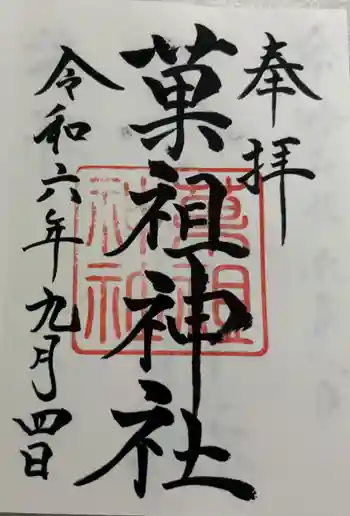 奉拝
菓祖神社
菓祖神社
令和六年九月四日